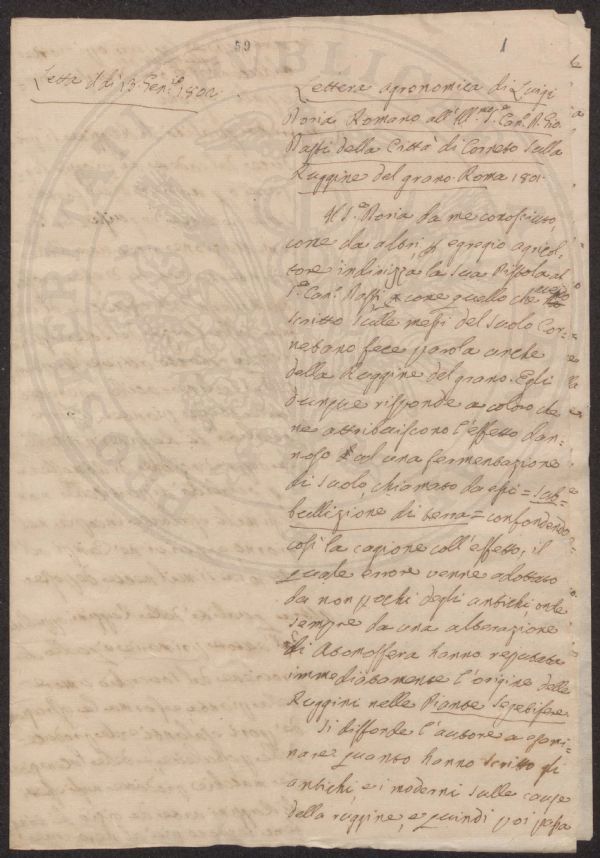 59
1
Letta il dì 13 Gen.º 1802
Lettera agronomica di Luigi
Doria Romano all'Ill.mo S.r Can. D. Gio
Masti della Città di Corneto sulla
Ruggine del grano. Roma 1801.
Il S.r Doria da me conosciuto,
come da altri, egregio agricol-
tore indirizza la sua Pistola al
S.r Can.º Masti come quello che
scritto sulle messi del suolo Cor-
netano fece parola anche
della Ruggine del grano. Egli
dunque risponde a coloro che
ne attribuiscono l'effetto dan-
noso ad una fermentazione
di suolo, chiamato da essi = sub-
bullizione di terra = confondendo
così la cagione coll'effetto; il
quale errore venne adottato
da non pochi degli antichi, onde
sempre da una alterazione
di Atmosfera hanno reputato
immediatamente l'origine delle
Ruggini nelle Piante
Si diffonde l'autore a esami-
nare quanto hanno scritto gli
antichi, e i moderni sulle cause
della ruggine, e quindi poi passa
PUBLICAE
PROSPERITATI